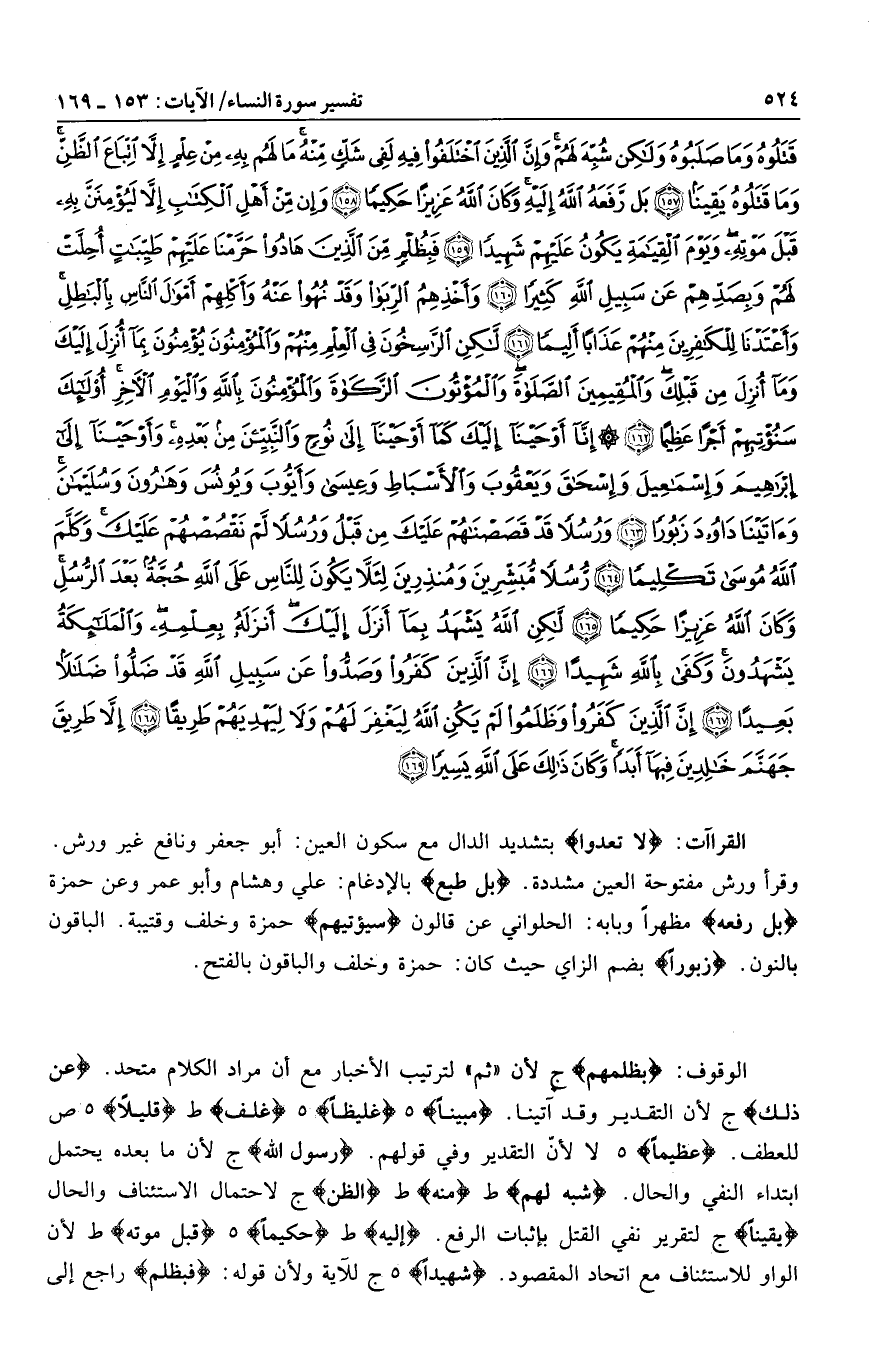 ٥٢٤ تفسير سورة النساء/ الآيات: ١٥٣ ـ ١٦٩
قَتَلُوهُ وَمَا صَلَبُوهُ وَلَٰكِن شُبِّهَ لَهُمْ ۚ وَإِنَّ ٱلَّذِينَ ٱخْتَلَفُوا۟ فِيهِ لَفِى شَكٍّ مِّنْهُ ۚ مَا لَهُم بِهِۦ مِنْ عِلْمٍ إِلَّا ٱتِّبَاعَ ٱلظَّنِّ ۚ
وَمَا قَتَلُوهُ يَقِينًۢا ﴿١٥٧﴾ بَل رَّفَعَهُ ٱللَّهُ إِلَيْهِ ۚ وَكَانَ ٱللَّهُ عَزِيزًا حَكِيمًا ﴿١٥٨﴾ وَإِن مِّنْ أَهْلِ ٱلْكِتَٰبِ إِلَّا لَيُؤْمِنَنَّ بِهِۦ
قَبْلَ مَوْتِهِۦ ۖ وَيَوْمَ ٱلْقِيَٰمَةِ يَكُونُ عَلَيْهِمْ شَهِيدًا ﴿١٥٩﴾ فَبِظُلْمٍ مِّنَ ٱلَّذِينَ هَادُوا۟ حَرَّمْنَا عَلَيْهِمْ طَيِّبَٰتٍ أُحِلَّتْ
لَهُمْ وَبِصَدِّهِمْ عَن سَبِيلِ ٱللَّهِ كَثِيرًا ﴿١٦٠﴾ وَأَخْذِهِمُ ٱلرِّبَوٰا۟ وَقَدْ نُهُوا۟ عَنْهُ وَأَكْلِهِمْ أَمْوَٰلَ ٱلنَّاسِ بِٱلْبَٰطِلِ ۚ
وَأَعْتَدْنَا لِلْكَٰفِرِينَ مِنْهُمْ عَذَابًا أَلِيمًا ﴿١٦١﴾ لَّٰكِنِ ٱلرَّٰسِخُونَ فِى ٱلْعِلْمِ مِنْهُمْ وَٱلْمُؤْمِنُونَ يُؤْمِنُونَ بِمَآ أُنزِلَ إِلَيْكَ
وَمَآ أُنزِلَ مِن قَبْلِكَ ۚ وَٱلْمُقِيمِينَ ٱلصَّلَوٰةَ ۚ وَٱلْمُؤْتُونَ ٱلزَّكَوٰةَ وَٱلْمُؤْمِنُونَ بِٱللَّهِ وَٱلْيَوْمِ ٱلْءَاخِرِ ۚ أُو۟لَٰٓئِكَ
سَنُؤْتِيهِمْ أَجْرًا عَظِيمًا ﴿١٦٢﴾ ۞ إِنَّآ أَوْحَيْنَآ إِلَيْكَ كَمَآ أَوْحَيْنَآ إِلَىٰ نُوحٍ وَٱلنَّبِيِّـۧنَ مِنۢ بَعْدِهِۦ ۚ وَأَوْحَيْنَآ إِلَىٰٓ
إِبْرَٰهِيمَ وَإِسْمَٰعِيلَ وَإِسْحَٰقَ وَيَعْقُوبَ وَٱلْأَسْبَاطِ وَعِيسَىٰ وَأَيُّوبَ وَيُونُسَ وَهَٰرُونَ وَسُلَيْمَٰنَ ۚ
وَءَاتَيْنَا دَاوُۥدَ زَبُورًا ﴿١٦٣﴾ وَرُسُلًا قَدْ قَصَصْنَٰهُمْ عَلَيْكَ مِن قَبْلُ وَرُسُلًا لَّمْ نَقْصُصْهُمْ عَلَيْكَ ۚ وَكَلَّمَ
ٱللَّهُ مُوسَىٰ تَكْلِيمًا ﴿١٦٤﴾ رُّسُلًا مُّبَشِّرِينَ وَمُنذِرِينَ لِئَلَّا يَكُونَ لِلنَّاسِ عَلَى ٱللَّهِ حُجَّةٌۢ بَعْدَ ٱلرُّسُلِ ۚ
وَكَانَ ٱللَّهُ عَزِيزًا حَكِيمًا ﴿١٦٥﴾ لَّٰكِنِ ٱللَّهُ يَشْهَدُ بِمَآ أَنزَلَ إِلَيْكَ ۖ أَنزَلَهُۥ بِعِلْمِهِۦ ۖ وَٱلْمَلَٰٓئِكَةُ
يَشْهَدُونَ ۚ وَكَفَىٰ بِٱللَّهِ شَهِيدًا ﴿١٦٦﴾ إِنَّ ٱلَّذِينَ كَفَرُوا۟ وَصَدُّوا۟ عَن سَبِيلِ ٱللَّهِ قَدْ ضَلُّوا۟ ضَلَٰلًۢا
بَعِيدًا ﴿١٦٧﴾ إِنَّ ٱلَّذِينَ كَفَرُوا۟ وَظَلَمُوا۟ لَمْ يَكُنِ ٱللَّهُ لِيَغْفِرَ لَهُمْ وَلَا لِيَهْدِيَهُمْ طَرِيقًا ﴿١٦٨﴾ إِلَّا طَرِيقَ
جَهَنَّمَ خَٰلِدِينَ فِيهَآ أَبَدًا ۚ وَكَانَ ذَٰلِكَ عَلَى ٱللَّهِ يَسِيرًا ﴿١٦٩﴾
القراآت: ﴿لا تعدوا﴾ بتشديد الدال مع سكون العين: أبو جعفر ونافع غير ورش.
وقرأ ورش مفتوحة العين مشددة. ﴿بل طبع﴾ بالإدغام: علي وهشام وأبو عمر وعن حمزة
﴿بل رفعه﴾ مظهراً وبابه: الحلواني عن قالون ﴿سيؤتيهم﴾ حمزة وخلف وقتيبة. الباقون
بالنون. ﴿زبوراً﴾ بضم الزاي حيث كان: حمزة وخلف والباقون بالفتح.
الوقوف: ﴿بظلمهم﴾ ج لأن «ثم» لترتيب الأخبار مع أن مراد الكلام متحد. ﴿عن
ذلك﴾ ج لأن التقدير وقد آتينا. ﴿مبيناً﴾ ٥ ﴿غليظاً﴾ ٥ ﴿غلف﴾ ط ﴿قليلاً﴾ ٥ ص
للعطف. ﴿عظيماً﴾ ٥ لا لأنّ التقدير وفي قولهم. ﴿رسول الله﴾ ج لأن ما بعده يحتمل
ابتداء النفي والحال. ﴿شبه لهم﴾ ط ﴿منه﴾ ط ﴿الظن﴾ ج لاحتمال الاستئناف والحال
﴿يقيناً﴾ ج لتقرير نفي القتل بإثبات الرفع. ﴿إليه﴾ ط ﴿حكيماً﴾ ٥ ﴿قبل موته﴾ ط لأن
الواو للاستئناف مع اتحاد المقصود. ﴿شهيداً﴾ ٥ ج للآية ولأن قوله: ﴿فبظلم﴾ راجع إلى